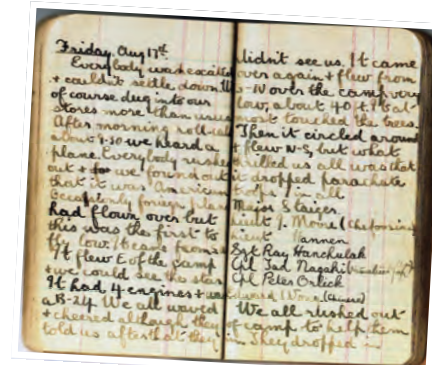 Friday. Aug 17th
Everybody was excited
& couldn't settle down. We
of course dug into our
stores more than usual
After morning roll-call
about 9.30 we heard a
plane. Everybody rushed
out & we found out
that it was American
Occasionly foreign planes
had flown over but
this was the first to
fly low.
It flew E of the camp
& we could see the stars
It had 4 engines & was
a B-24. We all waved
& cheered although they
told us after that they
didn't see us. It came
over again & flew from
S-N over the camp very
low, about 40 ft. & it al-
most touched the trees.
Then it circled around
& flew N-S, but what
thrilled us all was that
it dropped parachute
troops 7 in all
Major Staiger
Lieut J. Moore (Chefoosian)
Lieut Hannen
Sgt Ray Hanchulak
Cpl Tad Nagaki
Cpl Peter Orlick
Edward Wong (Chinese)
We all rushed out
of camp to help them
in. They dropped in